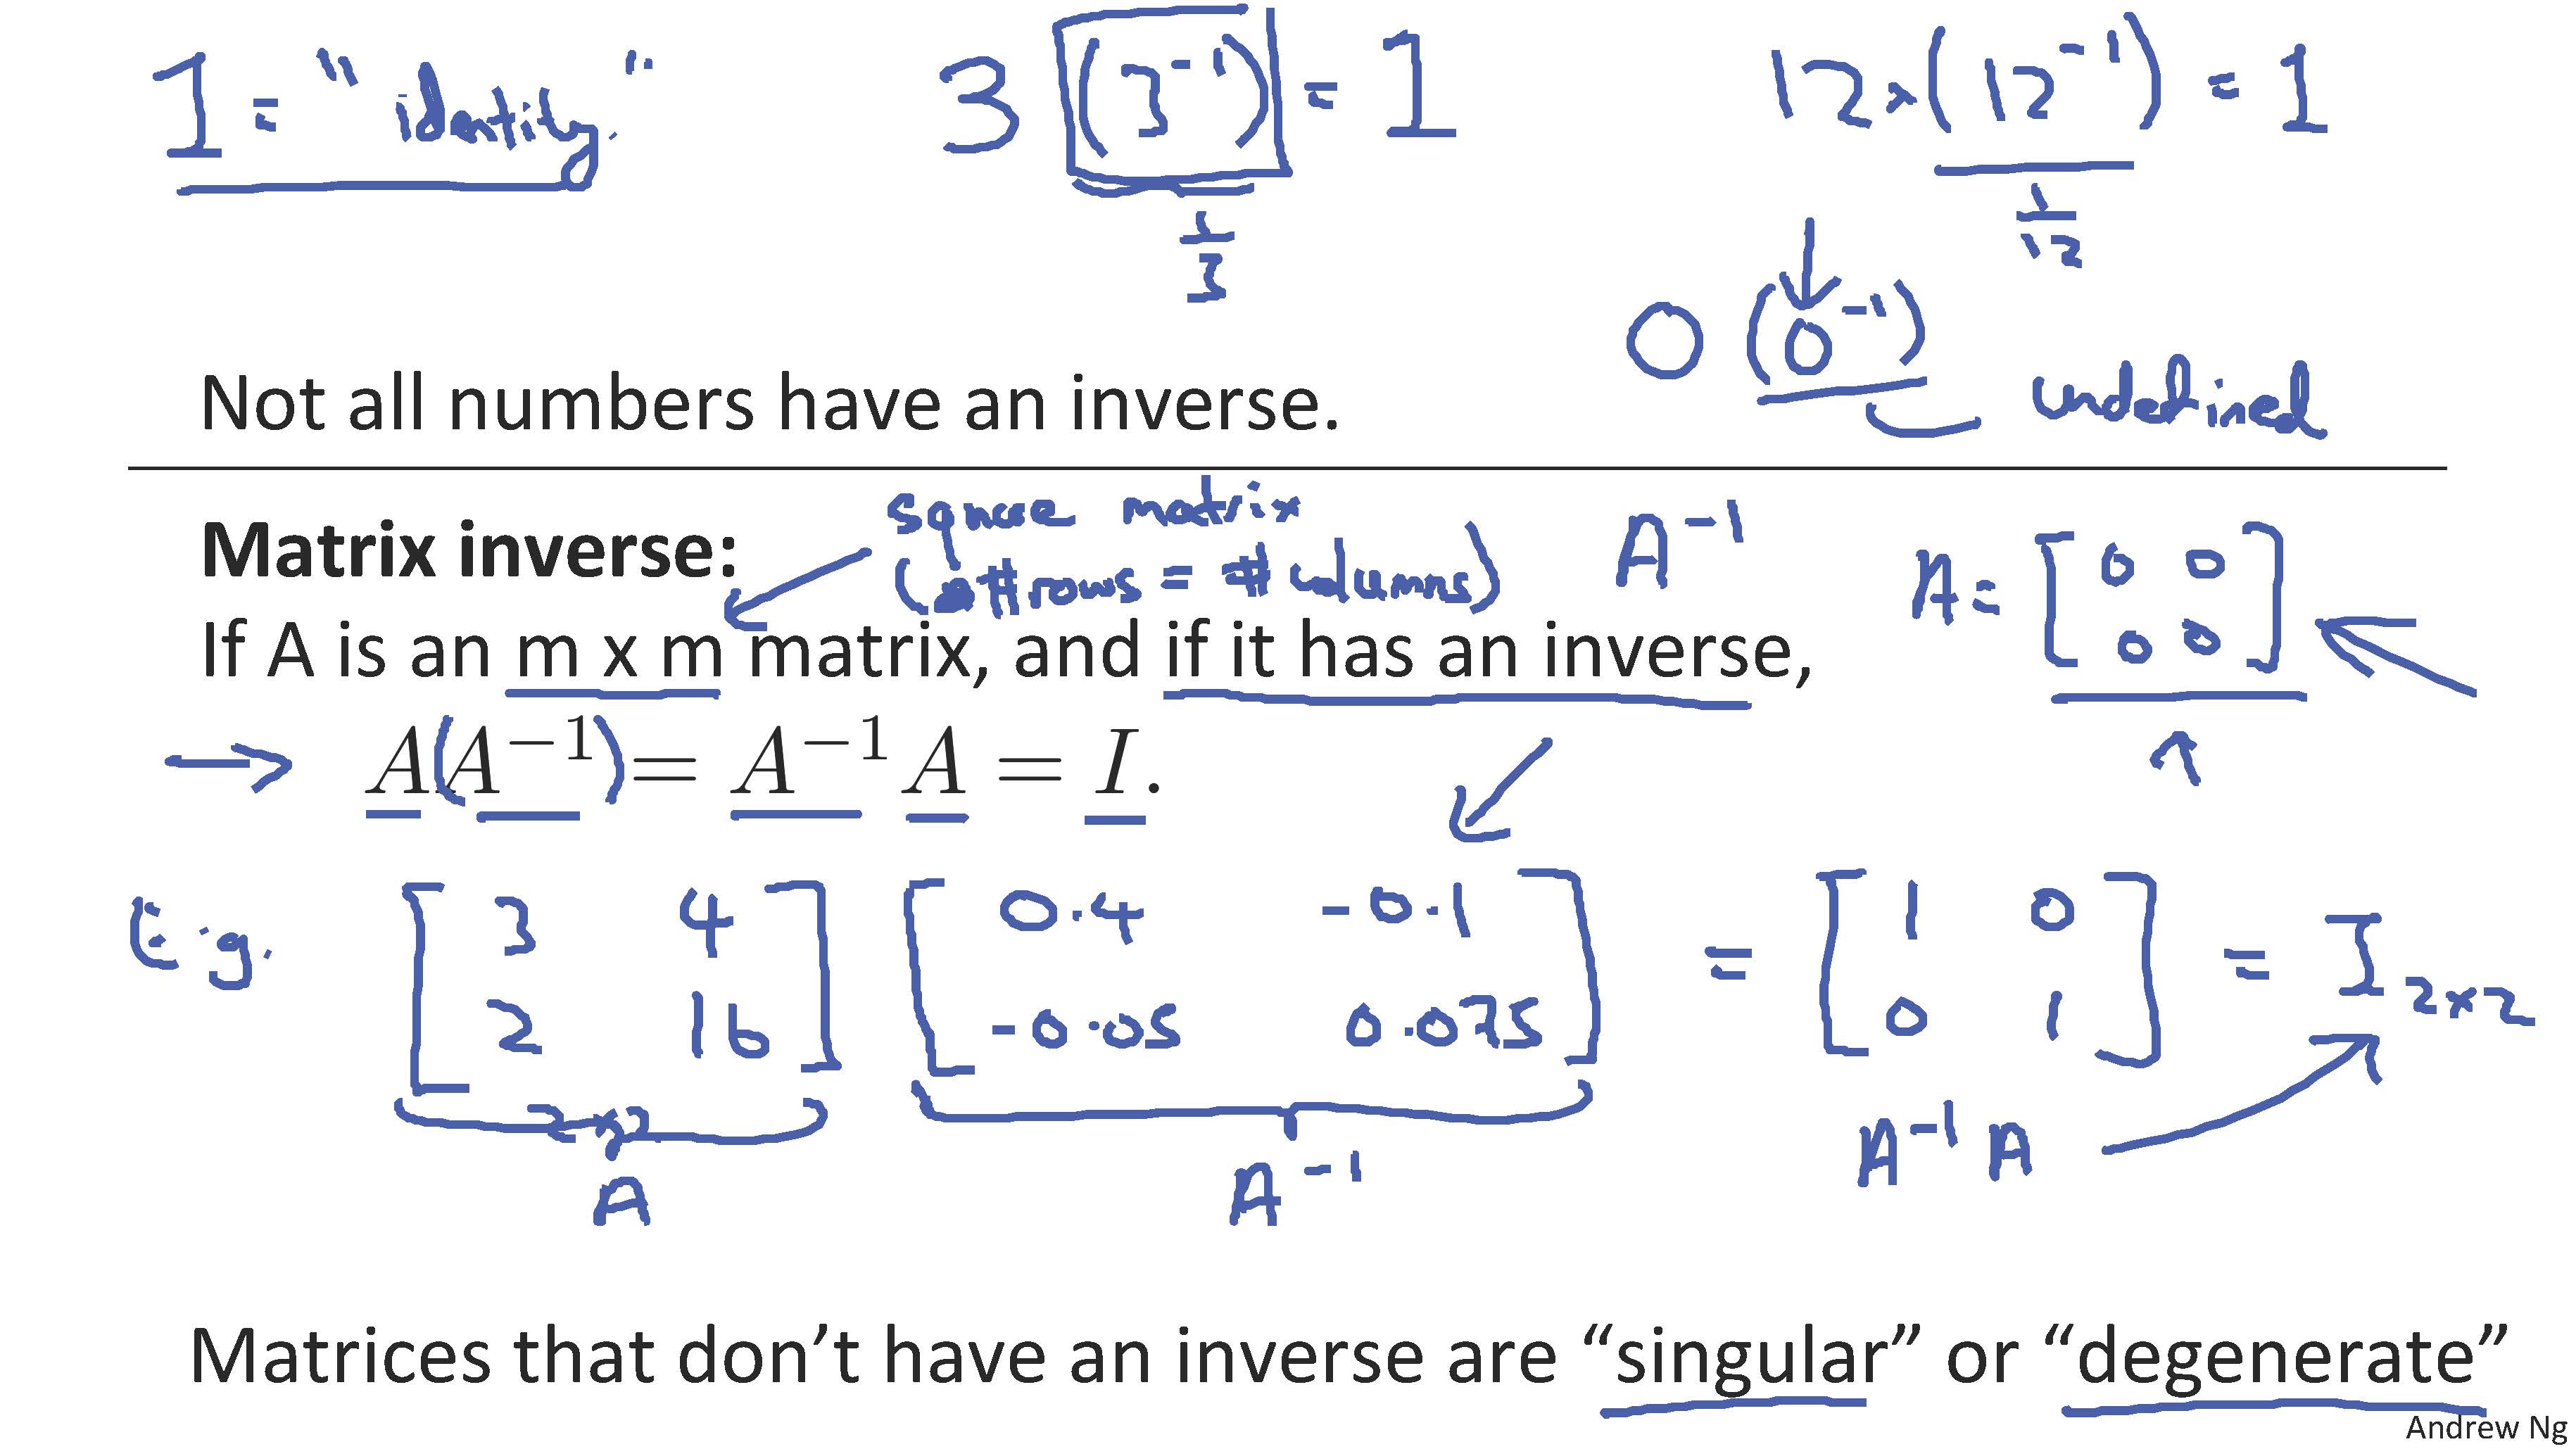 1 = "identity."
3 (3⁻¹) = 1
12 × (12⁻¹) = 1
1/3
1/12
0 (0⁻¹)
undefined
Not all numbers have an inverse.
square matrix
(#rows = #columns)
A⁻¹
A = [0 0
0 0]
Matrix inverse:
If A is an m x m matrix, and if it has an inverse,
→ A(A⁻¹) = A⁻¹A = I.
E.g. [3 4 [0.4 -0.1 = [1 0 = I 2×2
2 16] -0.05 0.075] 0 1]
2×2
A
A⁻¹
A⁻¹A
Matrices that don’t have an inverse are “singular” or “degenerate”
Andrew Ng